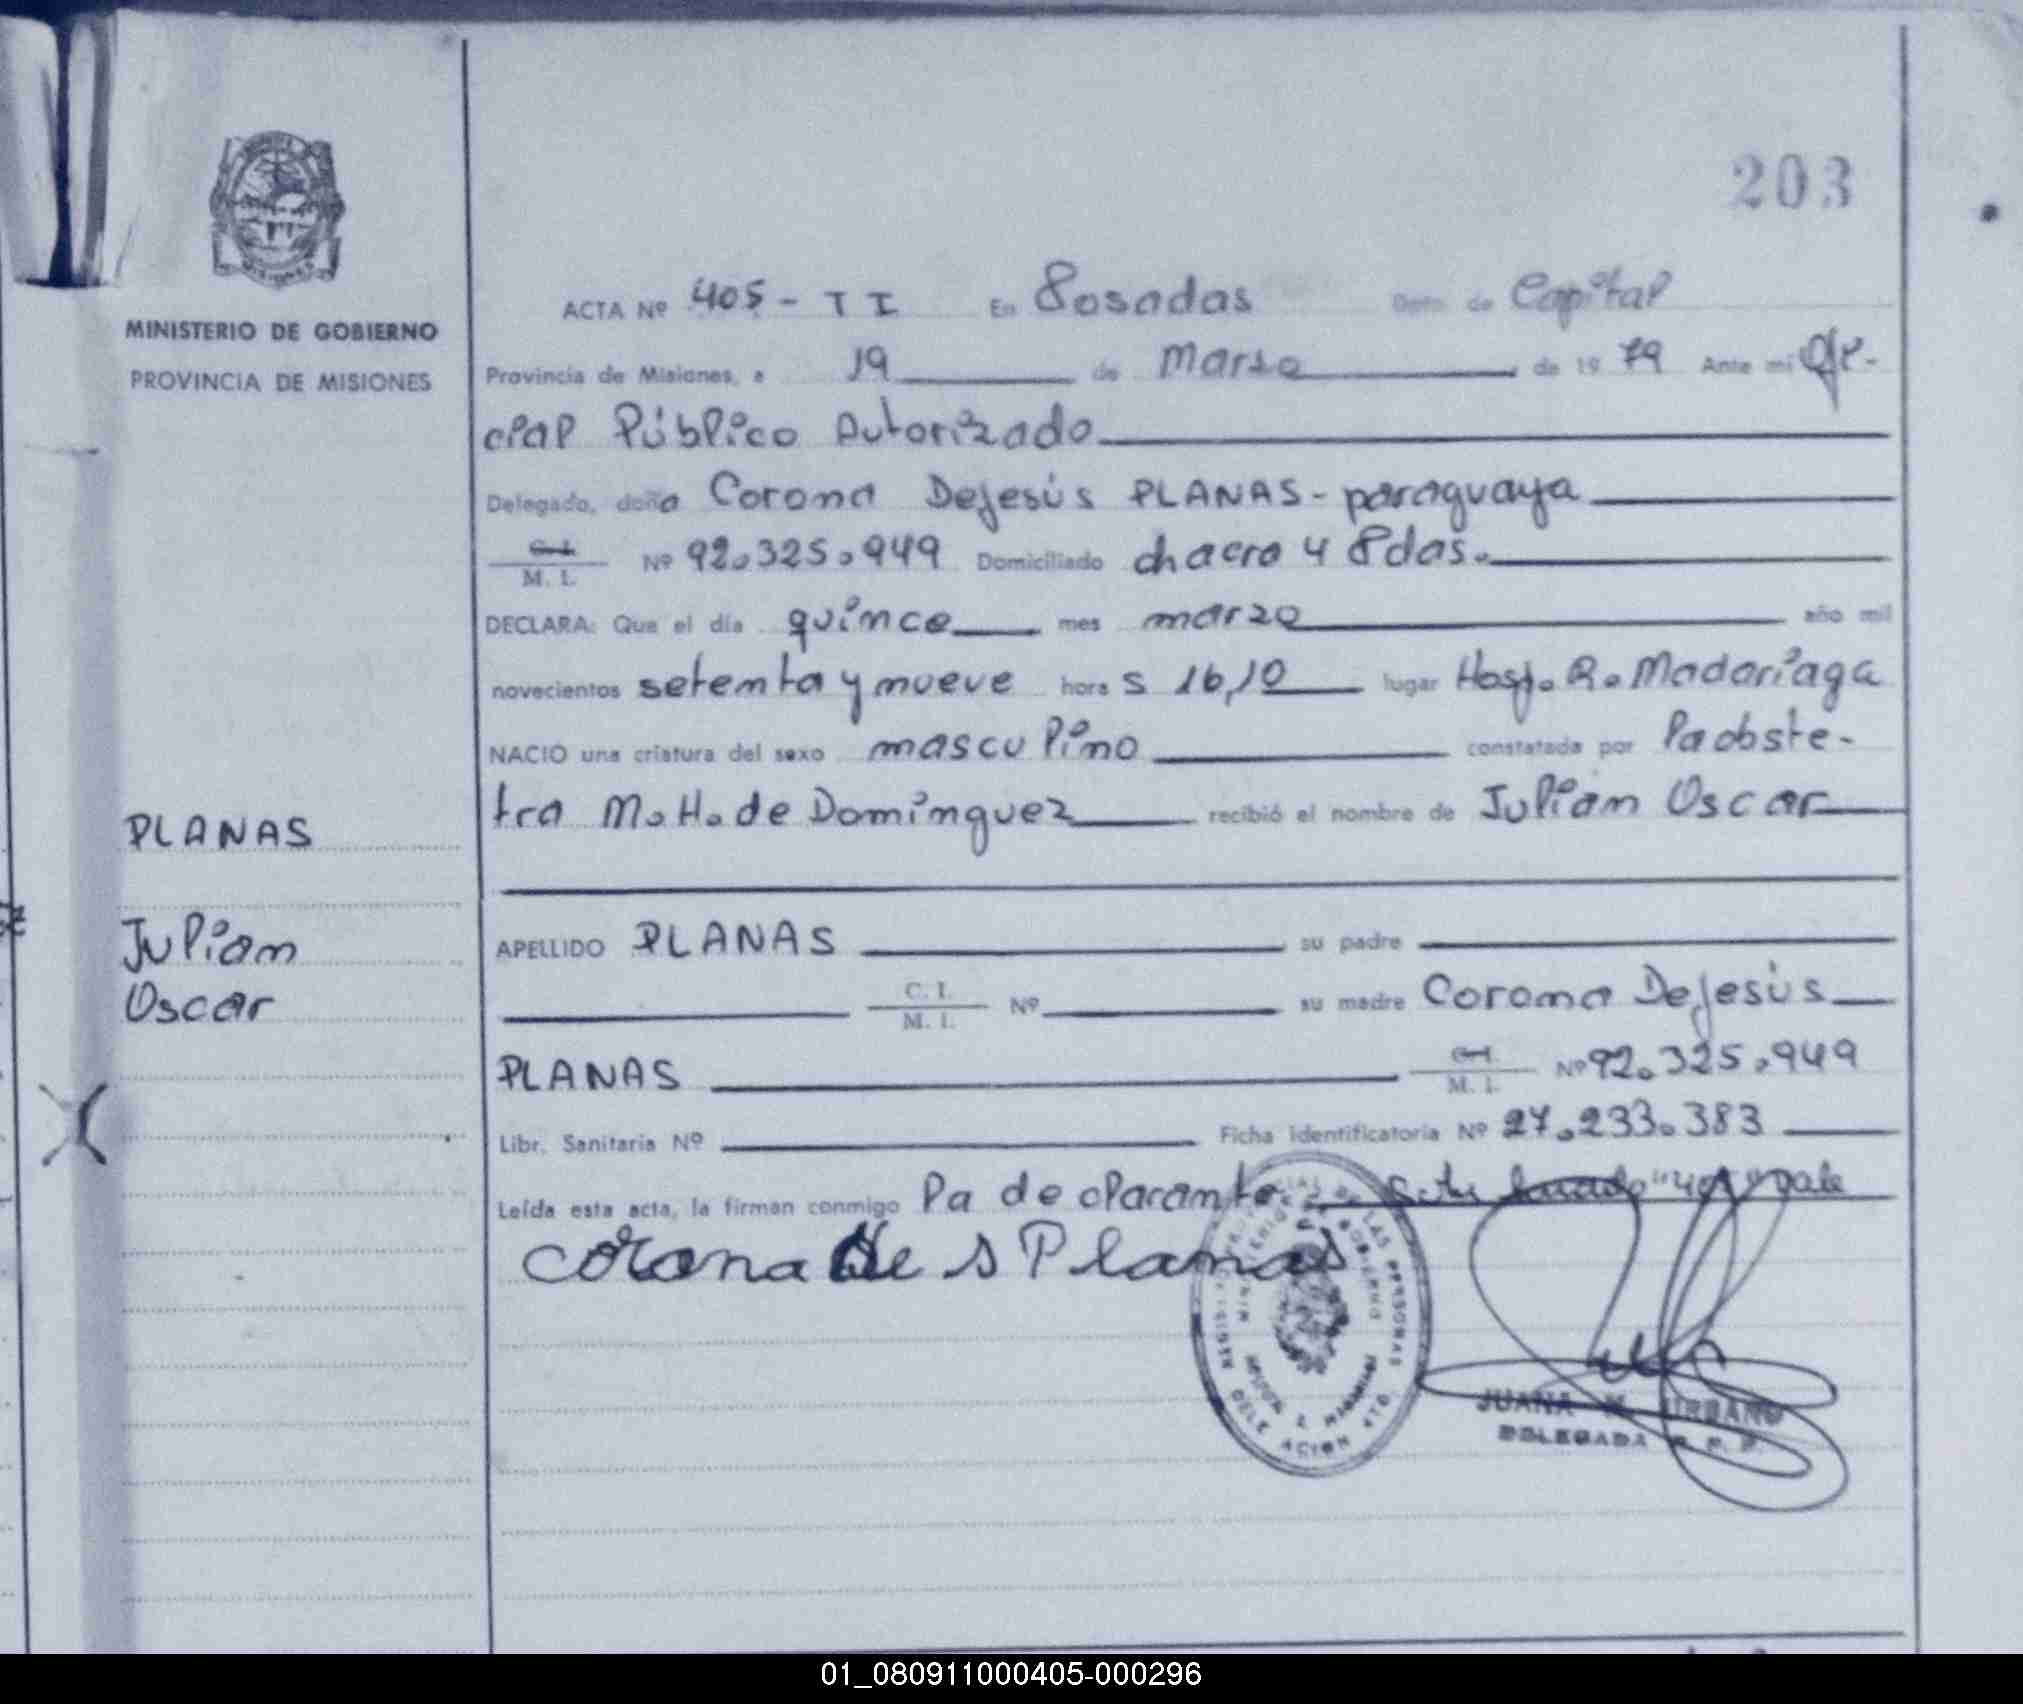 203
ACTA Nº 405 - TI En Posadas Dpto. de Capital
MINISTERIO DE GOBIERNO
PROVINCIA DE MISIONES
Provincia de Misiones, a 19 de Marzo de 1979 Ante mi Ofi-
cial Público Autorizado
Delegado, doña Corona DeJesús PLANAS - paraguaya
C.I. M. I. Nº 92.325.949 Domiciliado chacra 4 Pdas.
DECLARA: Que el día quince mes marzo año mil
novecientos setenta y nueve hora s 16,10 lugar Hosp. R. Madariaga
NACIO una criatura del sexo masculino constatada por la obste-
tra M. H. de Domínguez recibió el nombre de Julian Oscar
PLANAS
Julian
Oscar
APELLIDO PLANAS su padre
C. I. M. I. Nº su madre Corona DeJesús
PLANAS C.I. M. I. Nº 92.325.949
Libr. Sanitaria Nº Ficha identificatoria Nº 27.233.383
Leída esta acta, la firman conmigo la declarante "405" vale
Corona De J Planas
DE LAS PERSONAS
DELEGACION
JUANA M. URBANO
DELEGADA R. P. P.
01_080911000405-000296